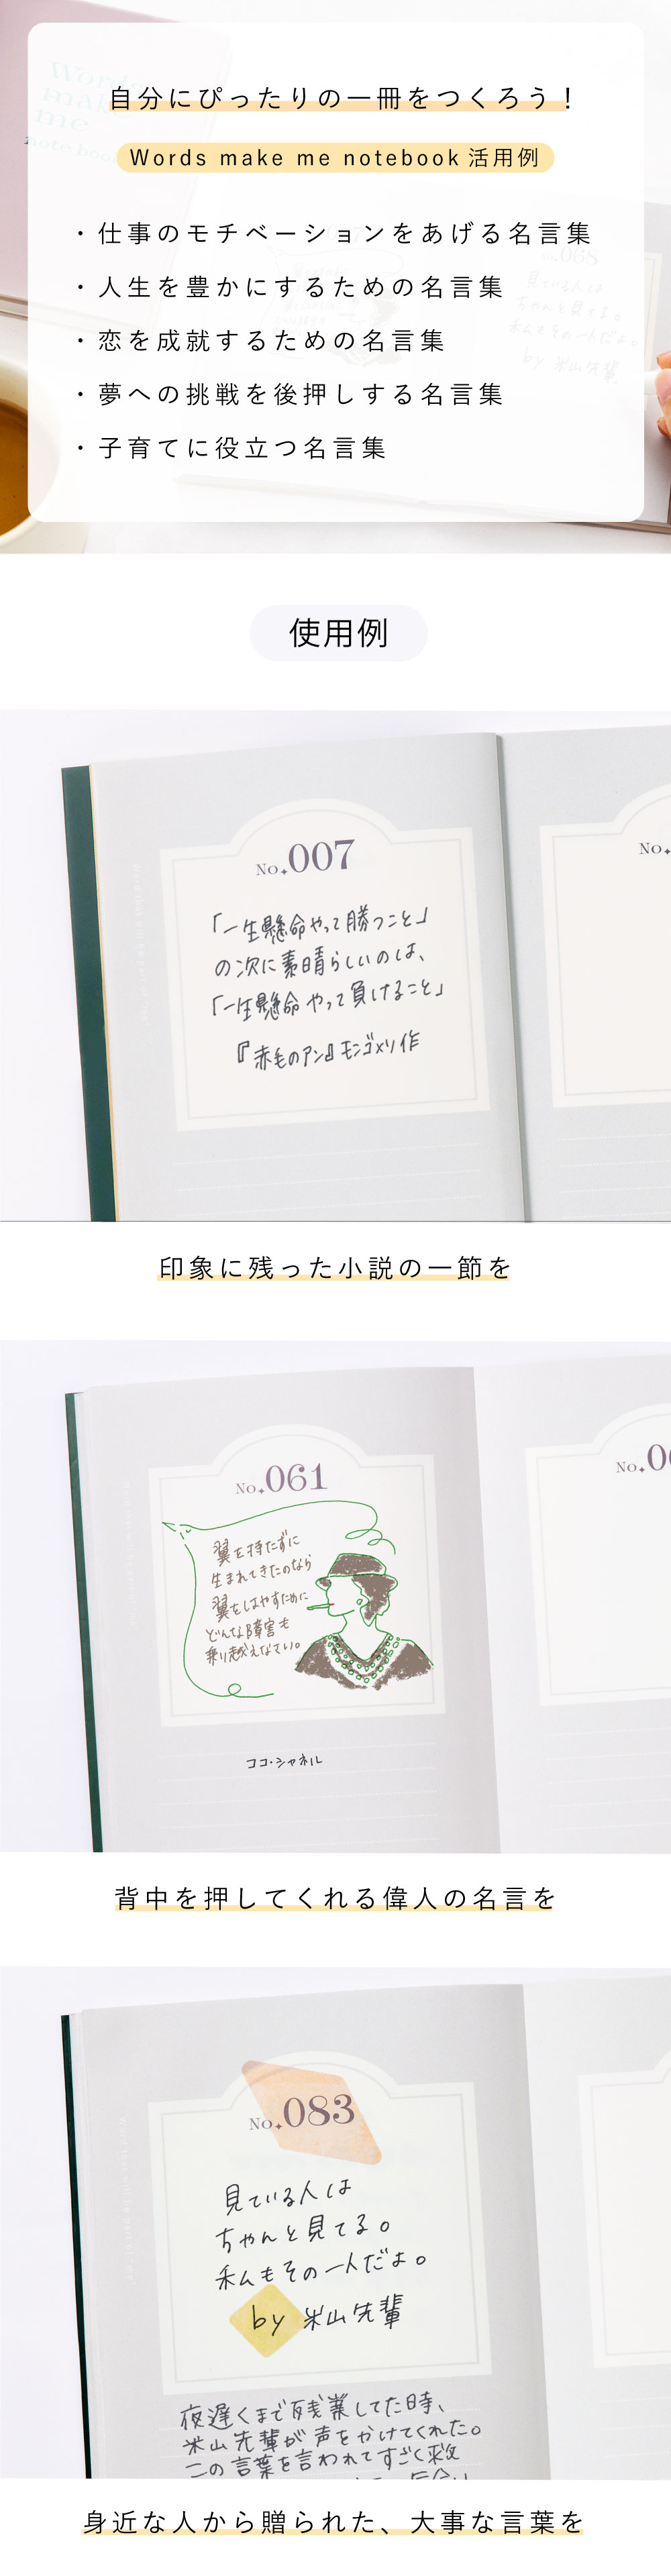 自分にぴったりの一冊をつくろう！
Words make me notebook 活用例
・仕事のモチベーションをあげる名言集
・人生を豊かにするための名言集
・恋を成就するための名言集
・夢への挑戦を後押しする名言集
・子育てに役立つ名言集
使用例
No.007
No.
「一生懸命やって勝つこと」
の次に素晴らしいのは、
「一生懸命やって負けること」
『赤毛のアン』モンゴメリ作
印象に残った小説の一節を
No.061
No.0
翼を持たずに
生まれてきたのなら
翼をはやすために
どんな障害も
乗り越えなさい。
ココ・シャネル
背中を押してくれる偉人の名言を
No.083
見ている人は
ちゃんと見てる。
私もその一人だよ。
by 米山先輩
夜遅くまで残業してた時、
米山先輩が声をかけてくれた。
この言葉を言われてすごく救
身近な人から贈られた、大事な言葉を